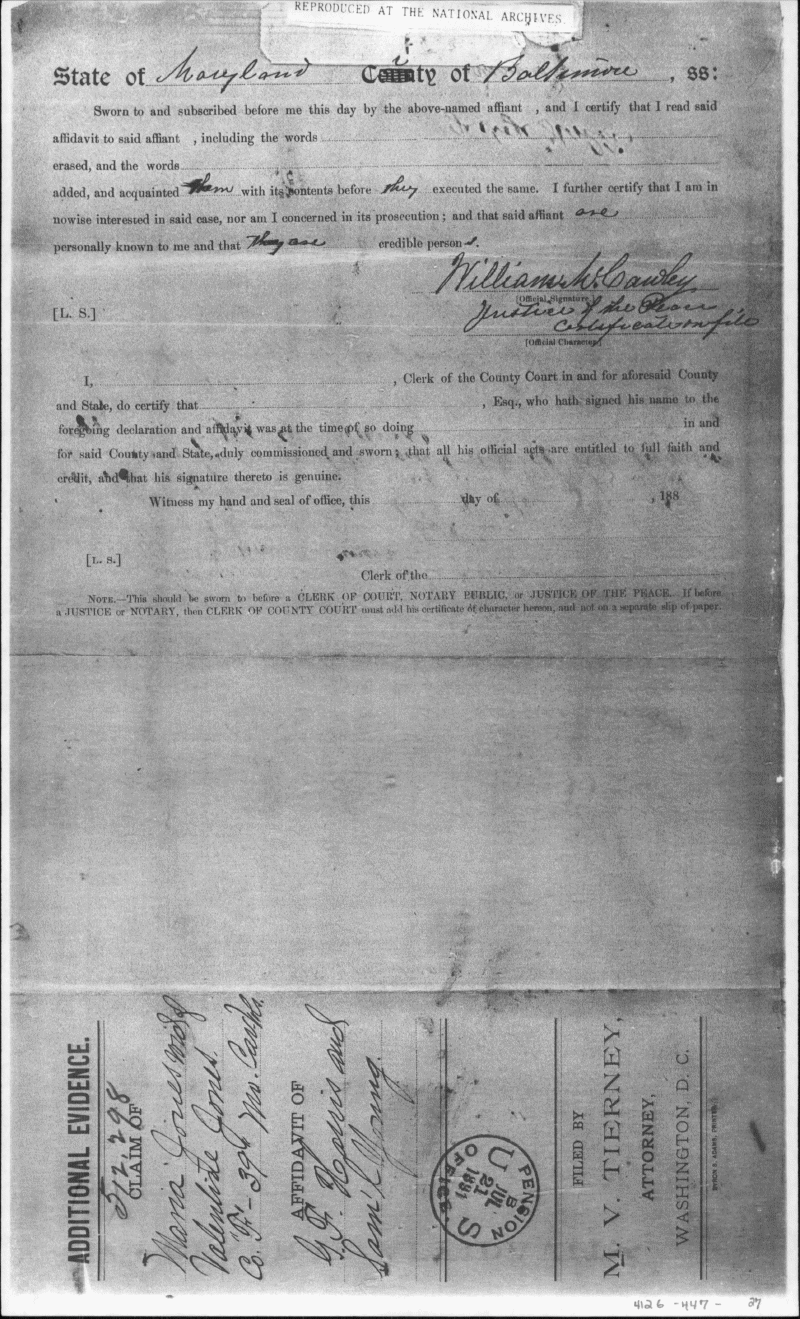 REPRODUCED AT THE NATIONAL ARCHIVES
State of Maryland City of Baltimore, ss:
Sworn to and subscribed before me this day by the above-named affiant , and I certify that I read said
affidavit to said affiant , including the words
erased, and the words
added, and acquainted them with its contents before they executed the same. I further certify that I am in
nowise interested in said case, nor am I concerned in its prosecution; and that said affiant are
personally known to me and that they are credible persons.
William McCawley
[Official Signature]
Justice of the Peace
[L. S.]
Certificate on file
[Official Character]
I, , Clerk of the County Court in and for aforesaid County
and State, do certify that , Esq., who hath signed his name to the
foregoing declaration and affidavit was at the time of so doing in and
for said County and State, duly commissioned and sworn; that all his official acts are entitled to full faith and
credit, and that his signature thereto is genuine.
Witness my hand and seal of office, this day of , 188
[L. S.]
Clerk of the
NOTE.—This should be sworn to before a CLERK OF COURT, NOTARY PUBLIC, or JUSTICE OF THE PEACE. If before
a JUSTICE or NOTARY, then CLERK OF COUNTY COURT must add his certificate of character hereon, and not on a separate slip of paper.
ADDITIONAL EVIDENCE.
512,298
CLAIM OF
Maria Jones wid of
Valentine Jones
Co. F - 39th
AFFIDAVIT OF
G. F. Harris and
Saml Young.
U S
PENSION OFFICE
B
JUL
21
1891
FILED BY
M. V. TIERNEY,
ATTORNEY,
WASHINGTON, D. C.
BYRON S. ADAMS, PRINTER
4126 - 447 - 27